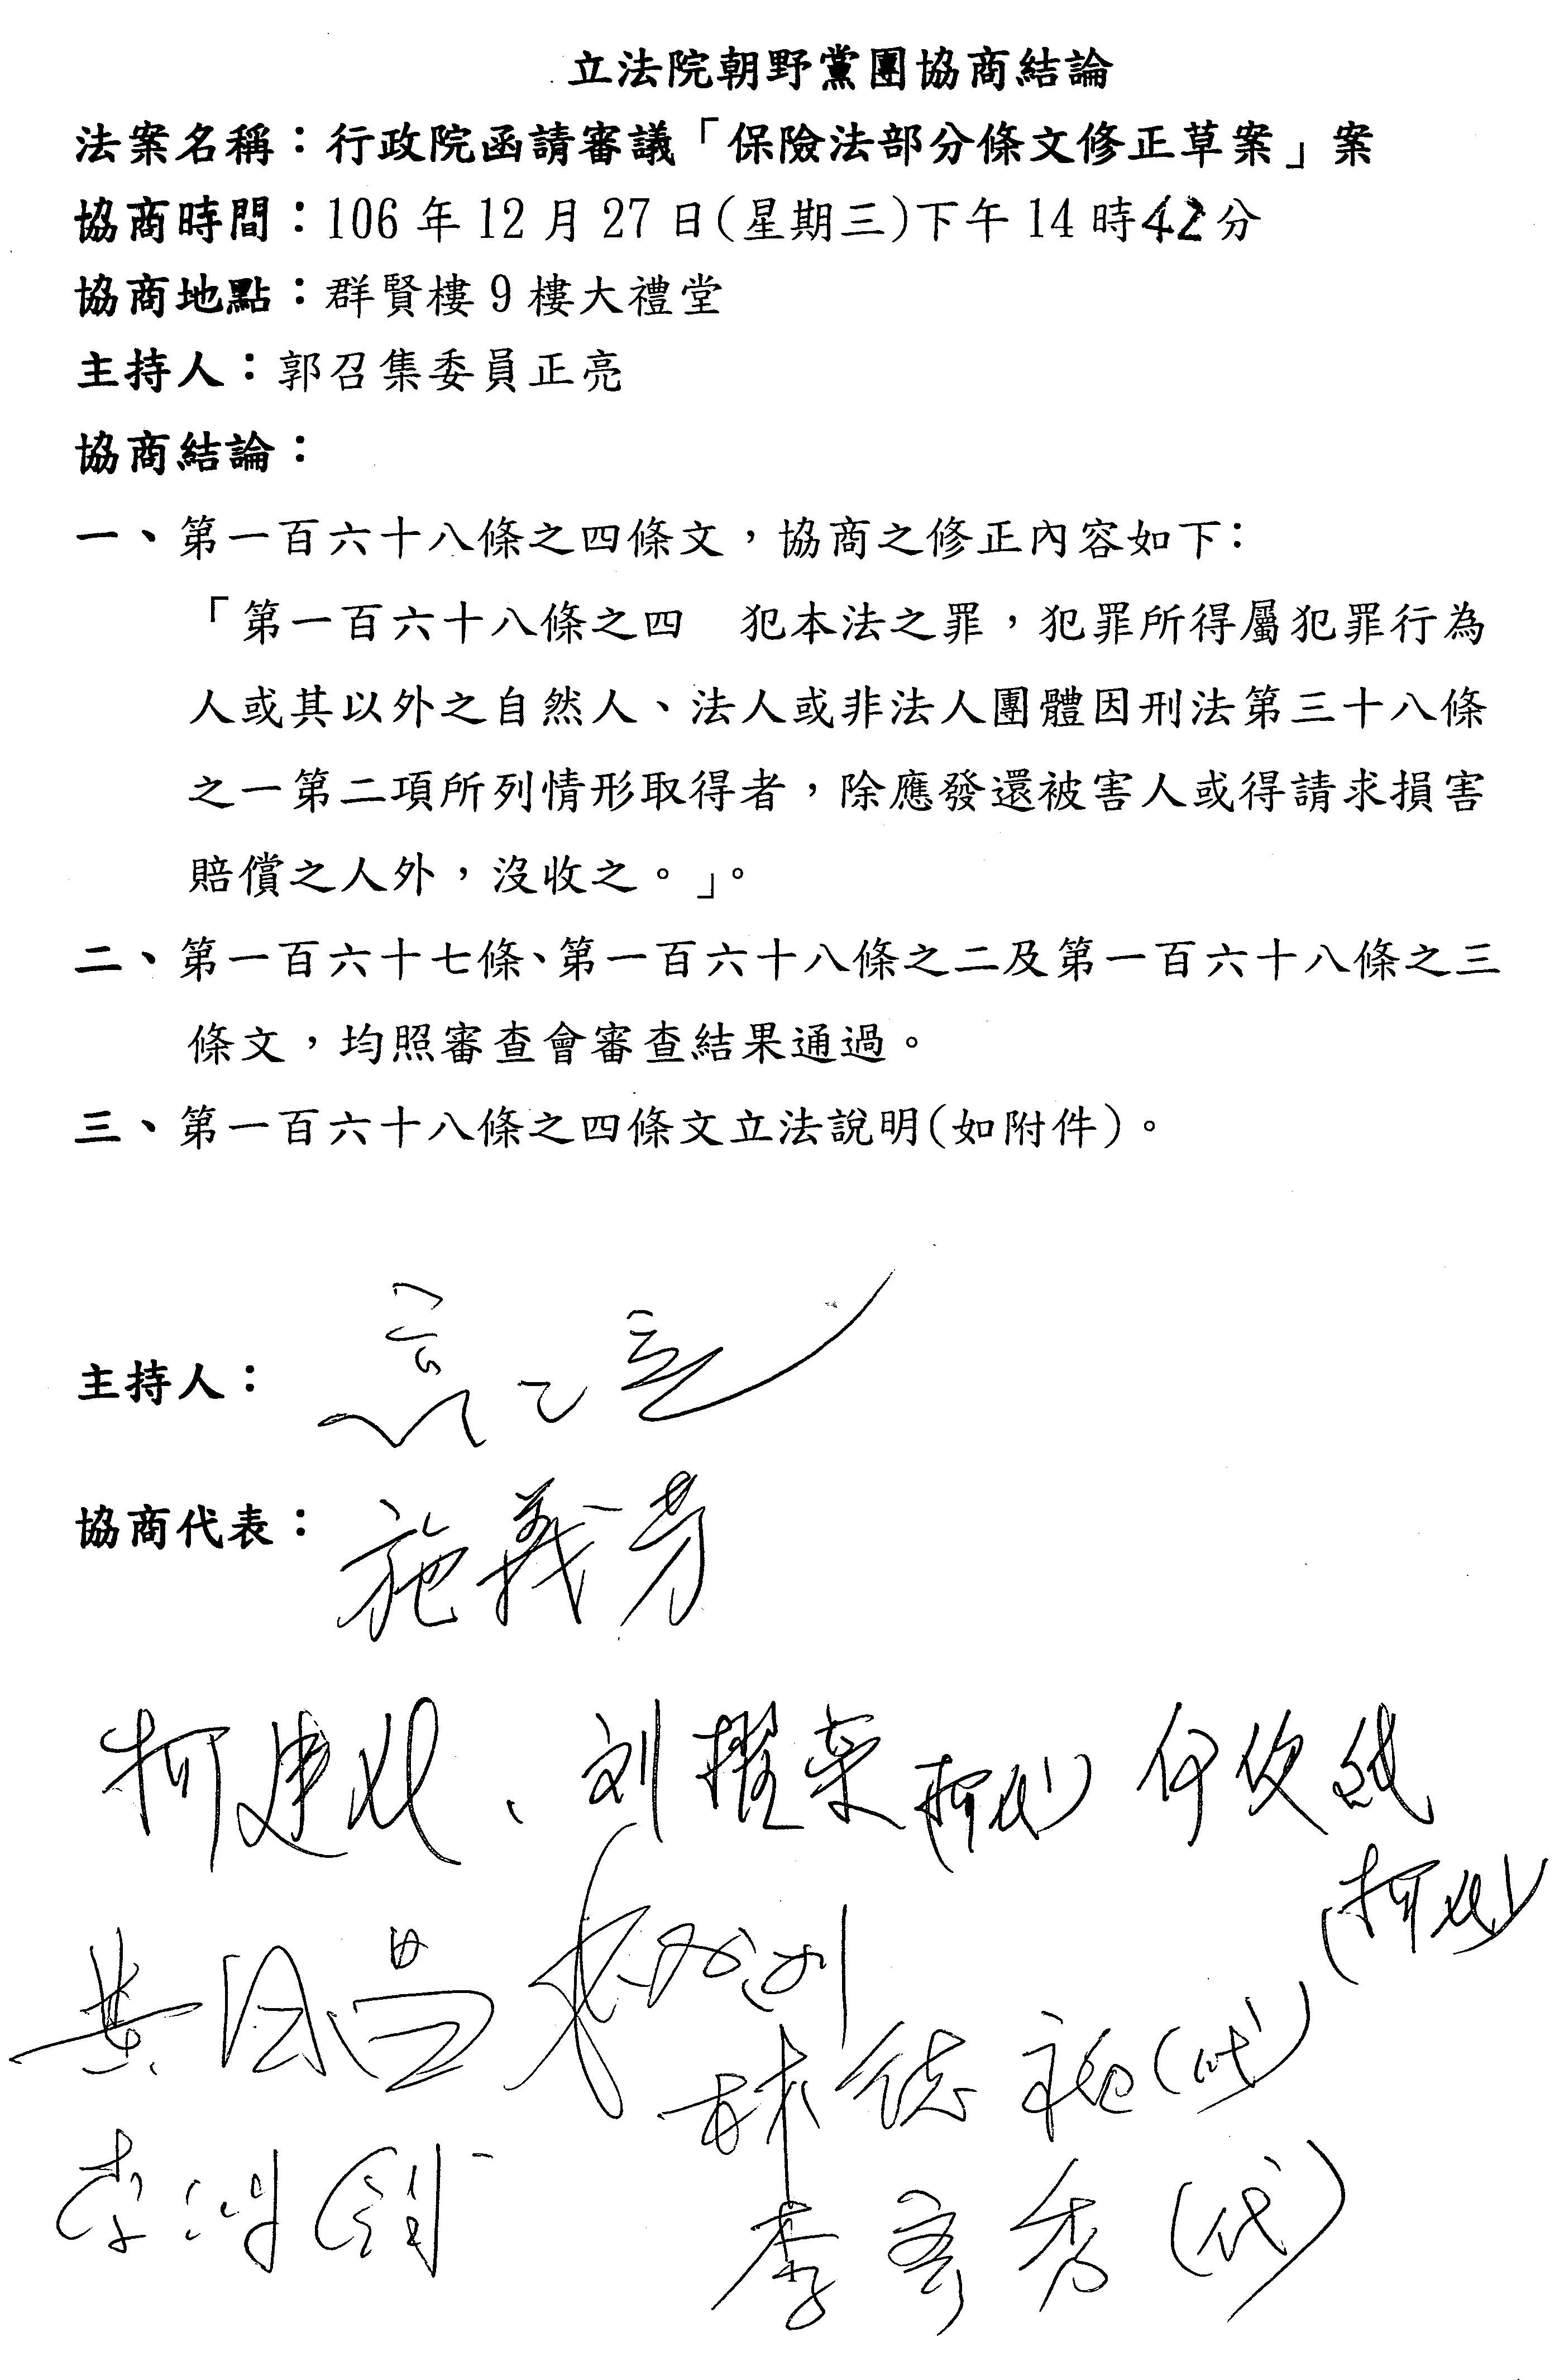 立法院朝野黨團協商結論
法案名稱：行政院函請審議「保險法部分條文修正草案」案
協商時間：106年12月27日(星期三)下午14時42分
協商地點：群賢樓9樓大禮堂
主持人：郭召集委員正亮
協商結論：
一、第一百六十八條之四條文，協商之修正內容如下：
「第一百六十八條之四　犯本法之罪，犯罪所得屬犯罪行為
人或其以外之自然人、法人或非法人團體因刑法第三十八條
之一第二項所列情形取得者，除應發還被害人或得請求損害
賠償之人外，沒收之。」。
二、第一百六十七條、第一百六十八條之二及第一百六十八條之三
條文，均照審查會審查結果通過。
三、第一百六十八條之四條文立法說明(如附件)。
主持人：
協商代表：施義芳
柯建銘、刘櫂荣
黃國昌
林德福(代)
李鴻鈞
李彥秀(代)